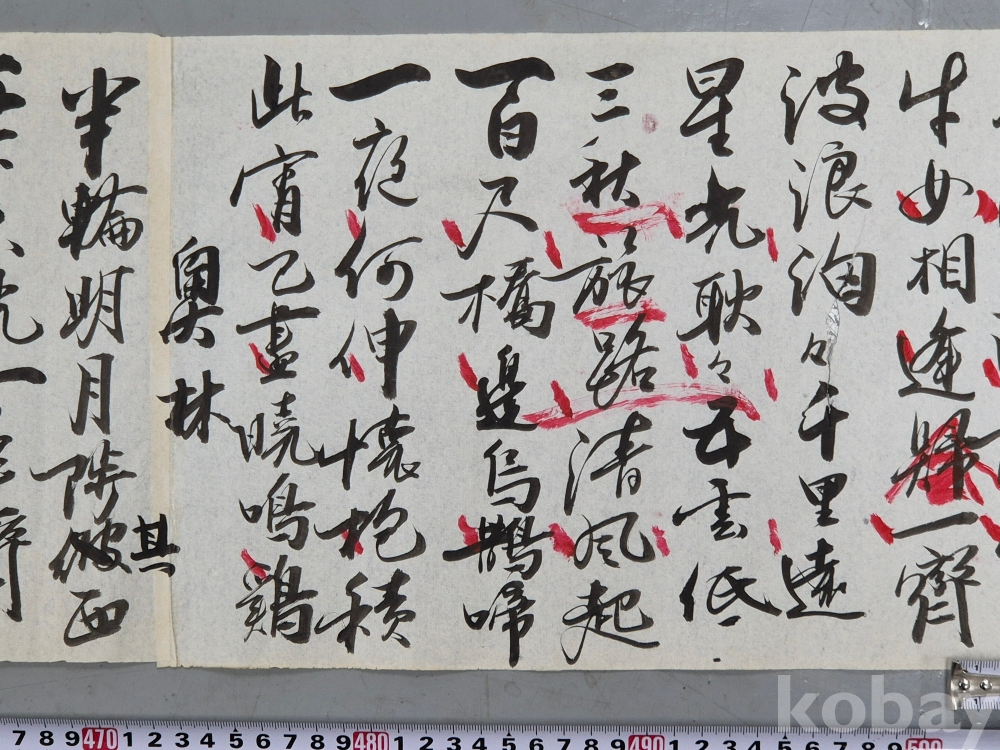 牛女相逢歸一齊
波浪洶々千里遠
星光耿々五雲低
三秋旅路清風起
百尺橋邊烏鵲啼
一夜何伸懷抱積
此宵已盡曉鳴鷄
奧林
半輪明月彼西
其
7 8 9 470 1 2 3 4 5 6 7 8 9 480 1 2 3 4 5 6 7 8 9 490 1 2 3 4 5 6 7 8 9
kobay